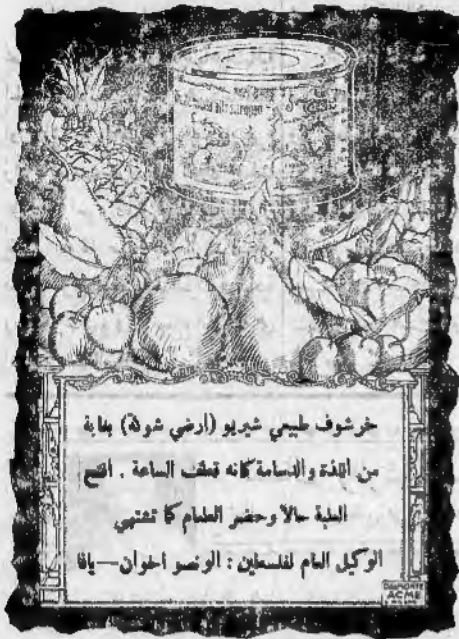 خرشوف طبيعي شيريو (ارضي شوكة) بغاية
من اللذة والدسامة كانه قطف الساعة . افتح
العلبة حالا وحضر الطعام كما تشتهي
الوكيل العام لفلسطين : الونصو اخوان — يافا
DALMONTE
ACME
MILANO